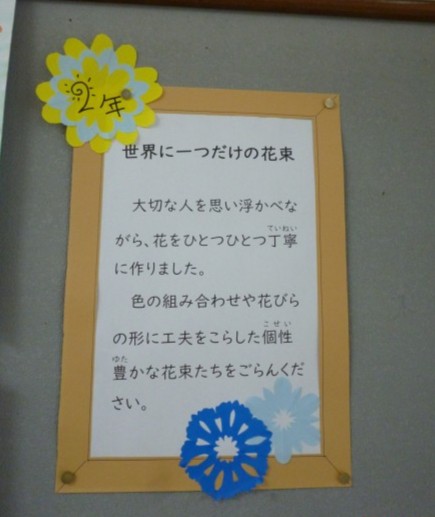 2年
世界に一つだけの花束
大切な人を思い浮かべな
がら、花をひとつひとつ丁寧
ていねい
に作りました。
色の組み合わせや花びら
の形に工夫をこらした個性
こせい
豊かな花束たちをごらんくだ
ゆた
さい。